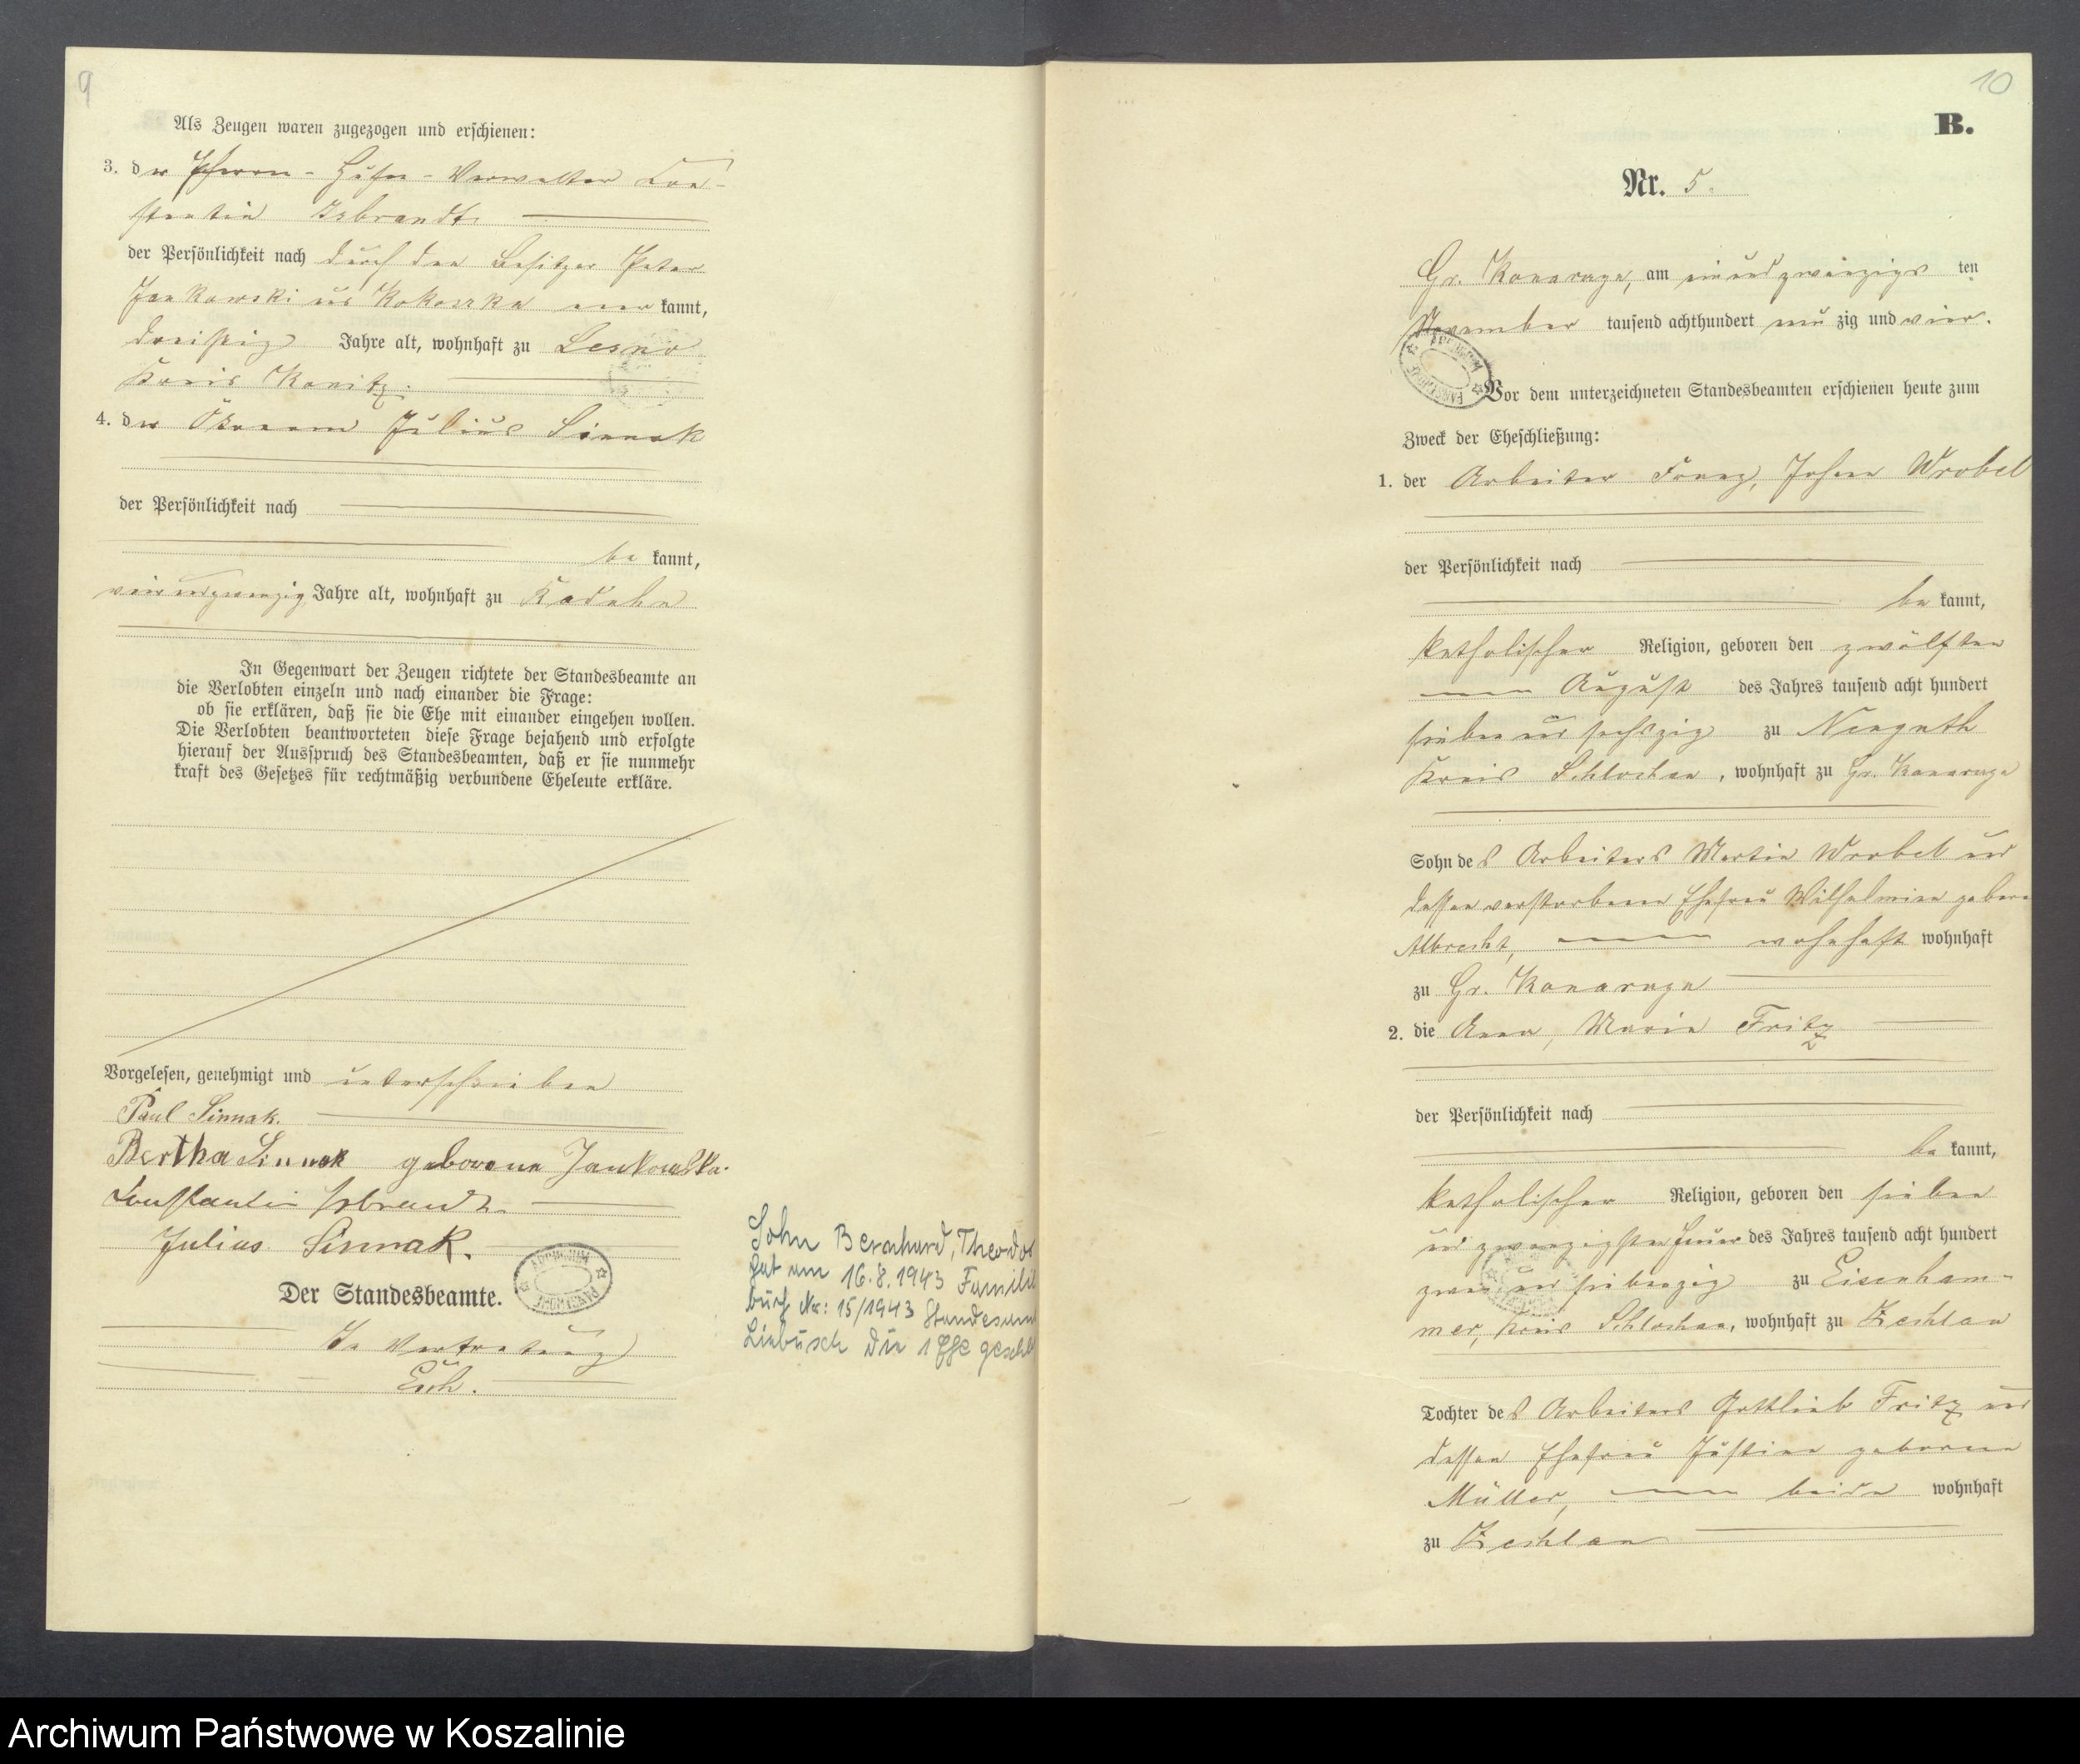 9
Als Zeugen waren zugezogen und erschienen:
3. der Pfarr-Hufen-Verwalter Con-
stantin Isbrandt
der Persönlichkeit nach durch den Besitzer Peter
Jankowski aus Kokoszka aner kannt,
dreißig Jahre alt, wohnhaft zu Lesno
Kreis Konitz.
4. der Ökonom Julius Sinnak
der Persönlichkeit nach
be kannt,
vierundzwanzig Jahre alt, wohnhaft zu
In Gegenwart der Zeugen richtete der Standesbeamte an
die Verlobten einzeln und nach einander die Frage:
ob sie erklären, daß sie die Ehe mit einander eingehen wollen.
Die Verlobten beantworteten diese Frage bejahend und erfolgte
hierauf der Ausspruch des Standesbeamten, daß er sie nunmehr
kraft des Gesetzes für rechtmäßig verbundene Eheleute erkläre.
Vorgelesen, genehmigt und unterschrieben
Paul Sinnak.
Bertha Sinnak geborene Jankowska.
Constantin Isbrandt
Julius Sinnak.
Der Standesbeamte.
In Vertretung
Esch.
Sohn Bernhard, Theodor
hat am 16.8.1943 Famili
buch Nr: 15/1943 Standesam
Liebusch die 1 Ehe geschl
10
B.
Nr. 5.
Gr. Konarczyn, am einundzwanzigs ten
November tausend achthundert neun zig und vier.
Vor dem unterzeichneten Standesbeamten erschienen heute zum
Zweck der Eheschließung:
1. der Arbeiter Franz, Johann Wrobel
der Persönlichkeit nach
be kannt,
katholischer Religion, geboren den zwölften
August des Jahres tausend acht hundert
sieben und sechszig zu Neuguth
Kreis Schlochau, wohnhaft zu Gr. Konarczyn
Sohn des Arbeiters Martin Wrobel und
dessen verstorbenen Ehefrau Wilhelmine gebore
Albrecht, wohnhaft wohnhaft
zu Gr. Konarczyn
2. die Anna, Maria Fritz
der Persönlichkeit nach
be kannt,
katholischer Religion, geboren den sieben
und zwanzigsten Januar des Jahres tausend acht hundert
zwei und siebenzig zu Eisenham-
mer, Kreis Schlochau, wohnhaft zu Zechlau
Tochter des Arbeiters Gottlieb Fritz und
dessen Ehefrau Justine geborene
Müller, beide wohnhaft
zu Zechlau
Archiwum Państwowe w Koszalinie